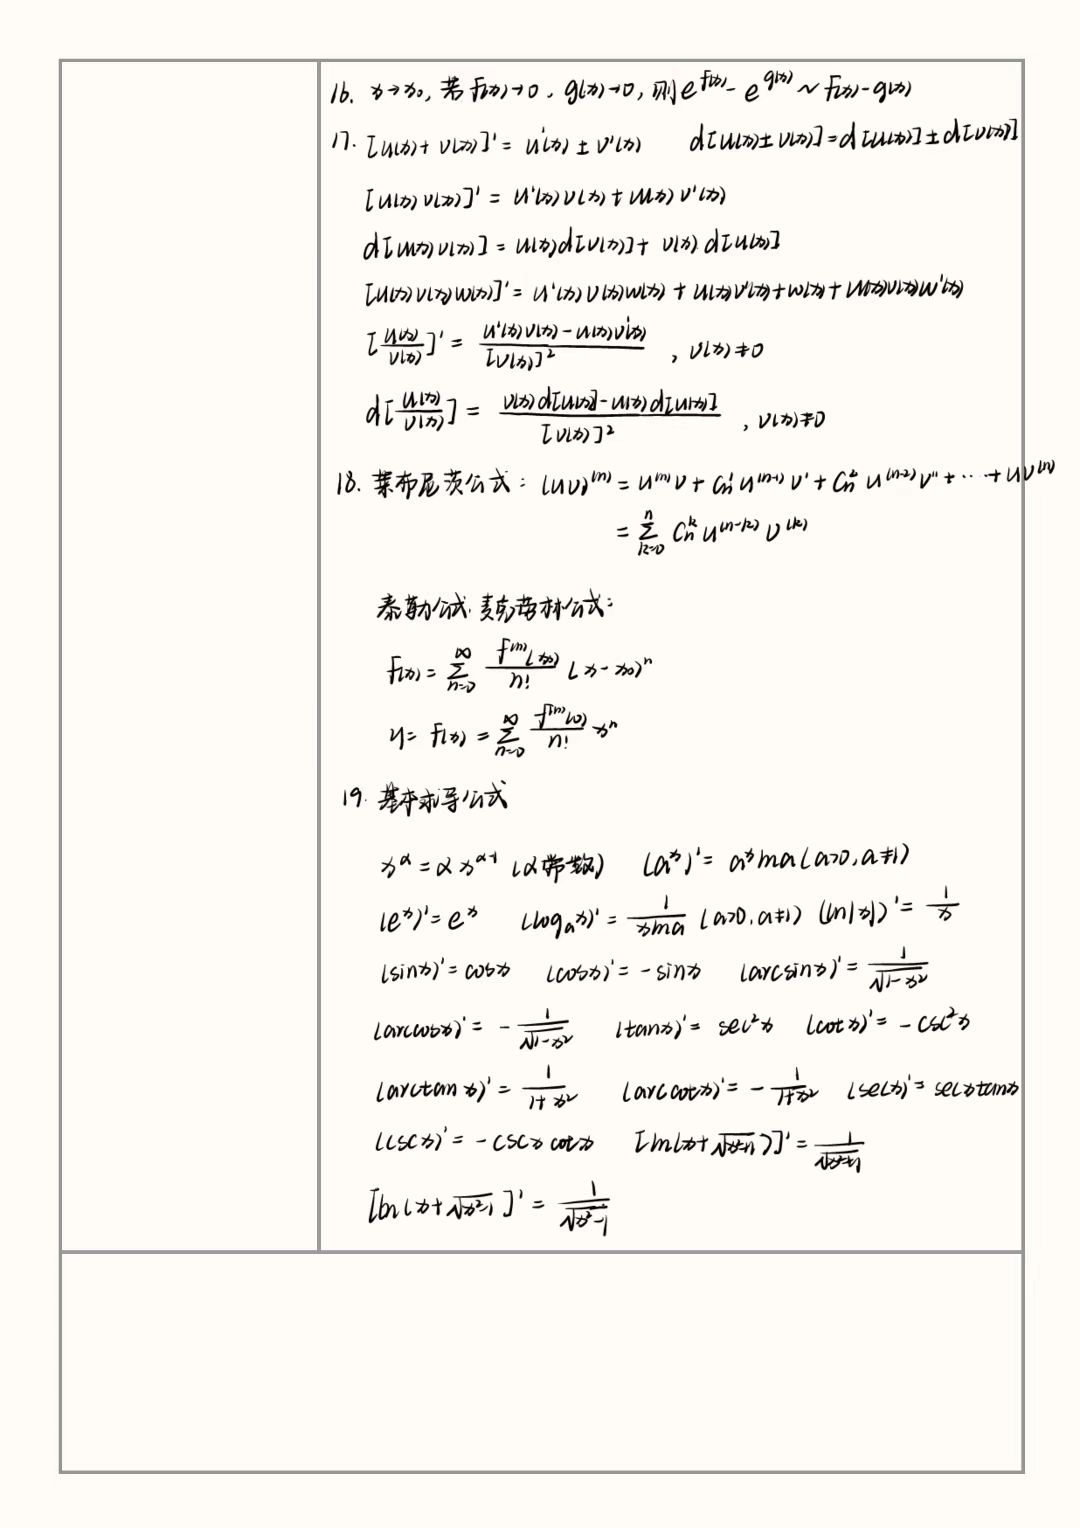 16. x→x₀, 若 f(x)→0, g(x)→0, 则 e^f(x) - e^g(x) ~ f(x)-g(x)
17. [u(x)+v(x)]' = u'(x) ± v'(x) d[u(x)±v(x)]=d[u(x)]±d[v(x)]
[u(x)v(x)]' = u'(x)v(x)+u(x)v'(x)
d[u(x)v(x)] = u(x)d[v(x)]+ v(x)d[u(x)]
[u(x)v(x)w(x)]' = u'(x)v(x)w(x) + u(x)v'(x)+w(x)+u(x)v(x)w'(x)
[u(x)/v(x)]' = (u'(x)v(x)-u(x)v'(x))/[v(x)]² , v(x)≠0
d[u(x)/v(x)] = (v(x)d[u(x)]-u(x)d[u(x)])/[v(x)]² , v(x)≠0
18. 莱布尼茨公式: (uv)^(n) = u^(n)v + C_n^1 u^(n-1) v' + C_n^2 u^(n-2) v'' + ⋯ + uv^(n)
= Σ_{k=0}^{n} C_n^k u^(n-k) v^(k)
泰勒公式,麦克劳林公式:
f(x) = Σ_{n=0}^{∞} f^(n)(x₀)/n! (x-x₀)^n
y= f(x) = Σ_{n=0}^{∞} f^(n)(0)/n! x^n
19. 基本求导公式
x^α = αx^(α-1) (α常数) (a^x)' = a^x lna (a>0, a≠1)
(e^x)' = e^x (log_a x)' = 1/(xlna) (a>0, a≠1) (ln|x|)' = 1/x
(sinx)' = cosx (cosx)' = -sinx (arcsinx)' = 1/√(1-x²)
(arccosx)' = - 1/√(1-x²) (tanx)' = sec²x (cotx)' = -csc²x
(arctanx)' = 1/(1+x²) (arccotx)' = - 1/(1+x²) (secx)' = secxtanx
(cscx)' = -cscxcotx [ln(x+√(x²+1))]' = 1/√(x²+1)
[ln(x+√(x²-1)]' = 1/√(x²-1)